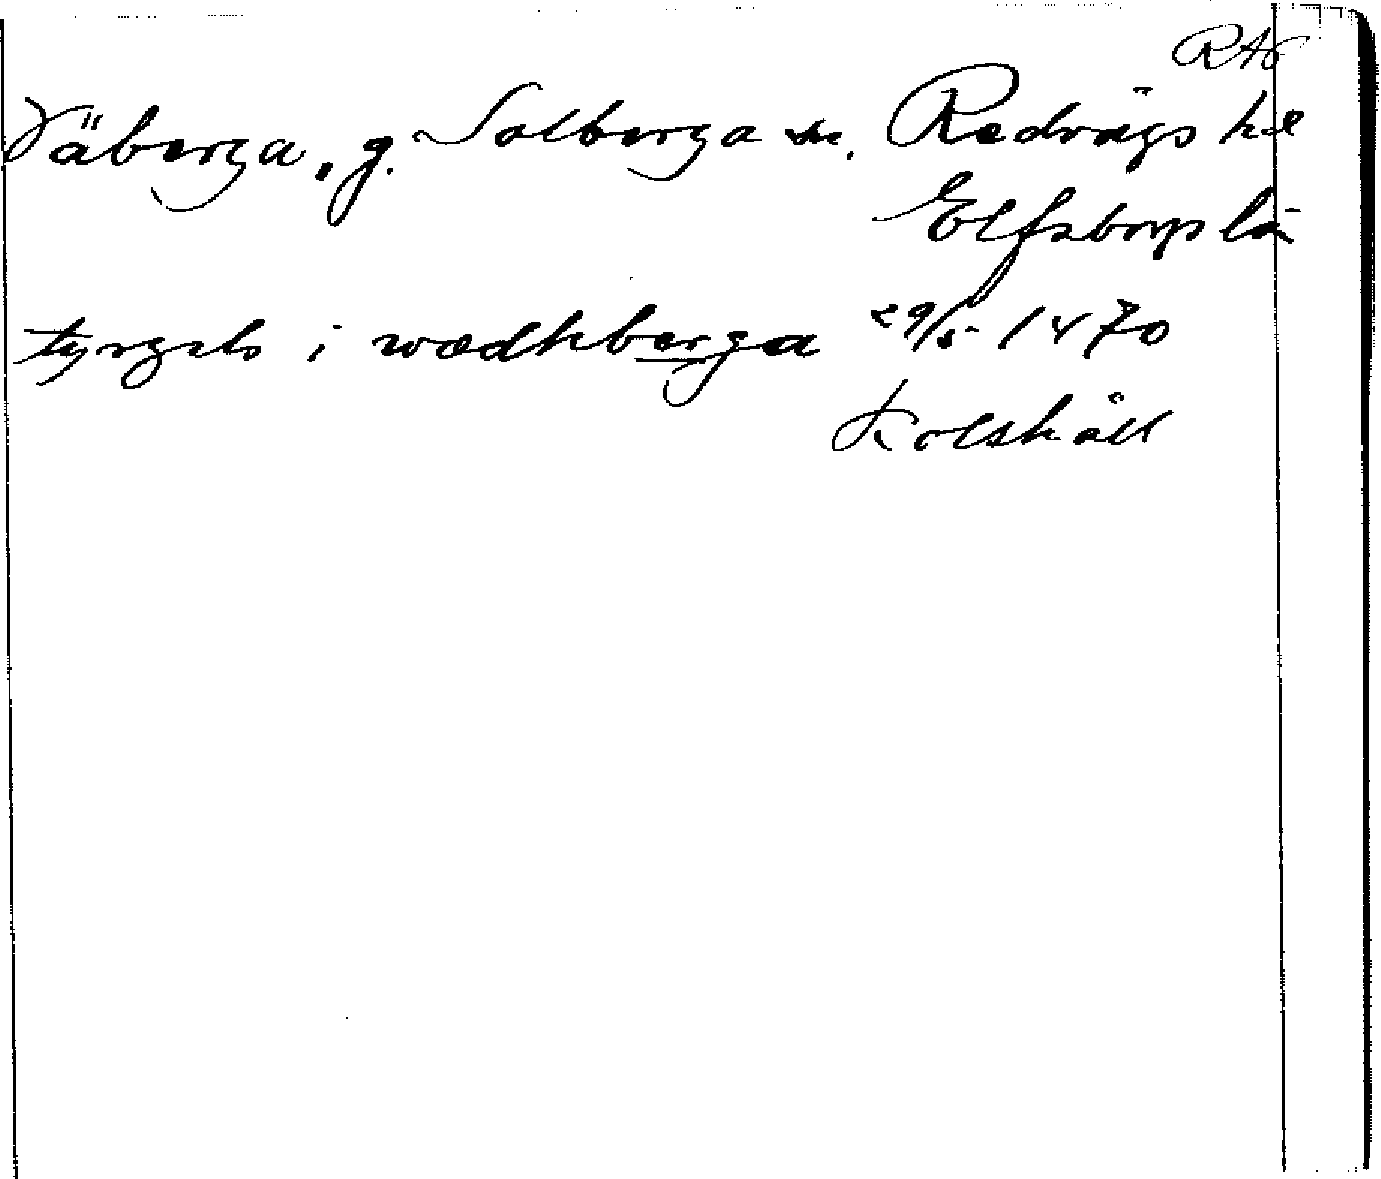 RAp
Väberga, g. Solberga sn. Redvägs hd
Elfsborgs län
tyrgels i wædhberga 29/5 1470
Kolshåll